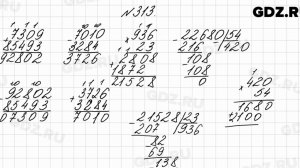 GDZ.R
N 313
7309
85493
92802
7010
3284
3726
936
23
2808
1872
21528
22680 54
216 420
108
108
0
420
54
1680
2100
92802
85493
07309
3726
3284
7010
21528 23
207 936
82
69
138
GDZ.R